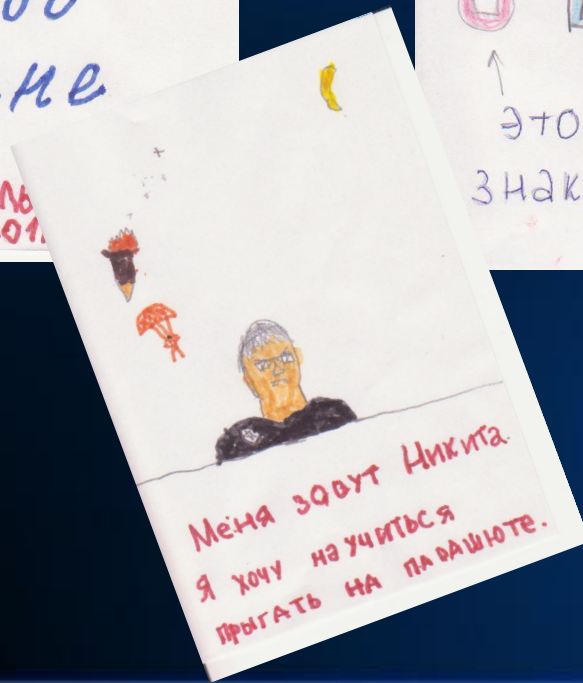 не
это
знак
Меня зовут Никита
Я хочу научиться
прыгать на парашюте.